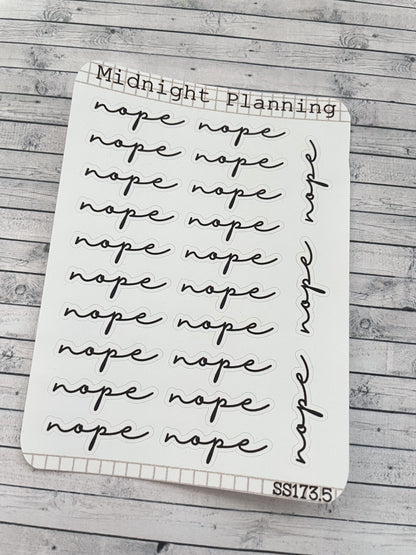 Midnight Planning
nope nope
nope nope
nope nope
nope nope
nope nope
nope nope
nope nope
nope nope
nope nope
nope nope
nope
nope
nope
SS173.5